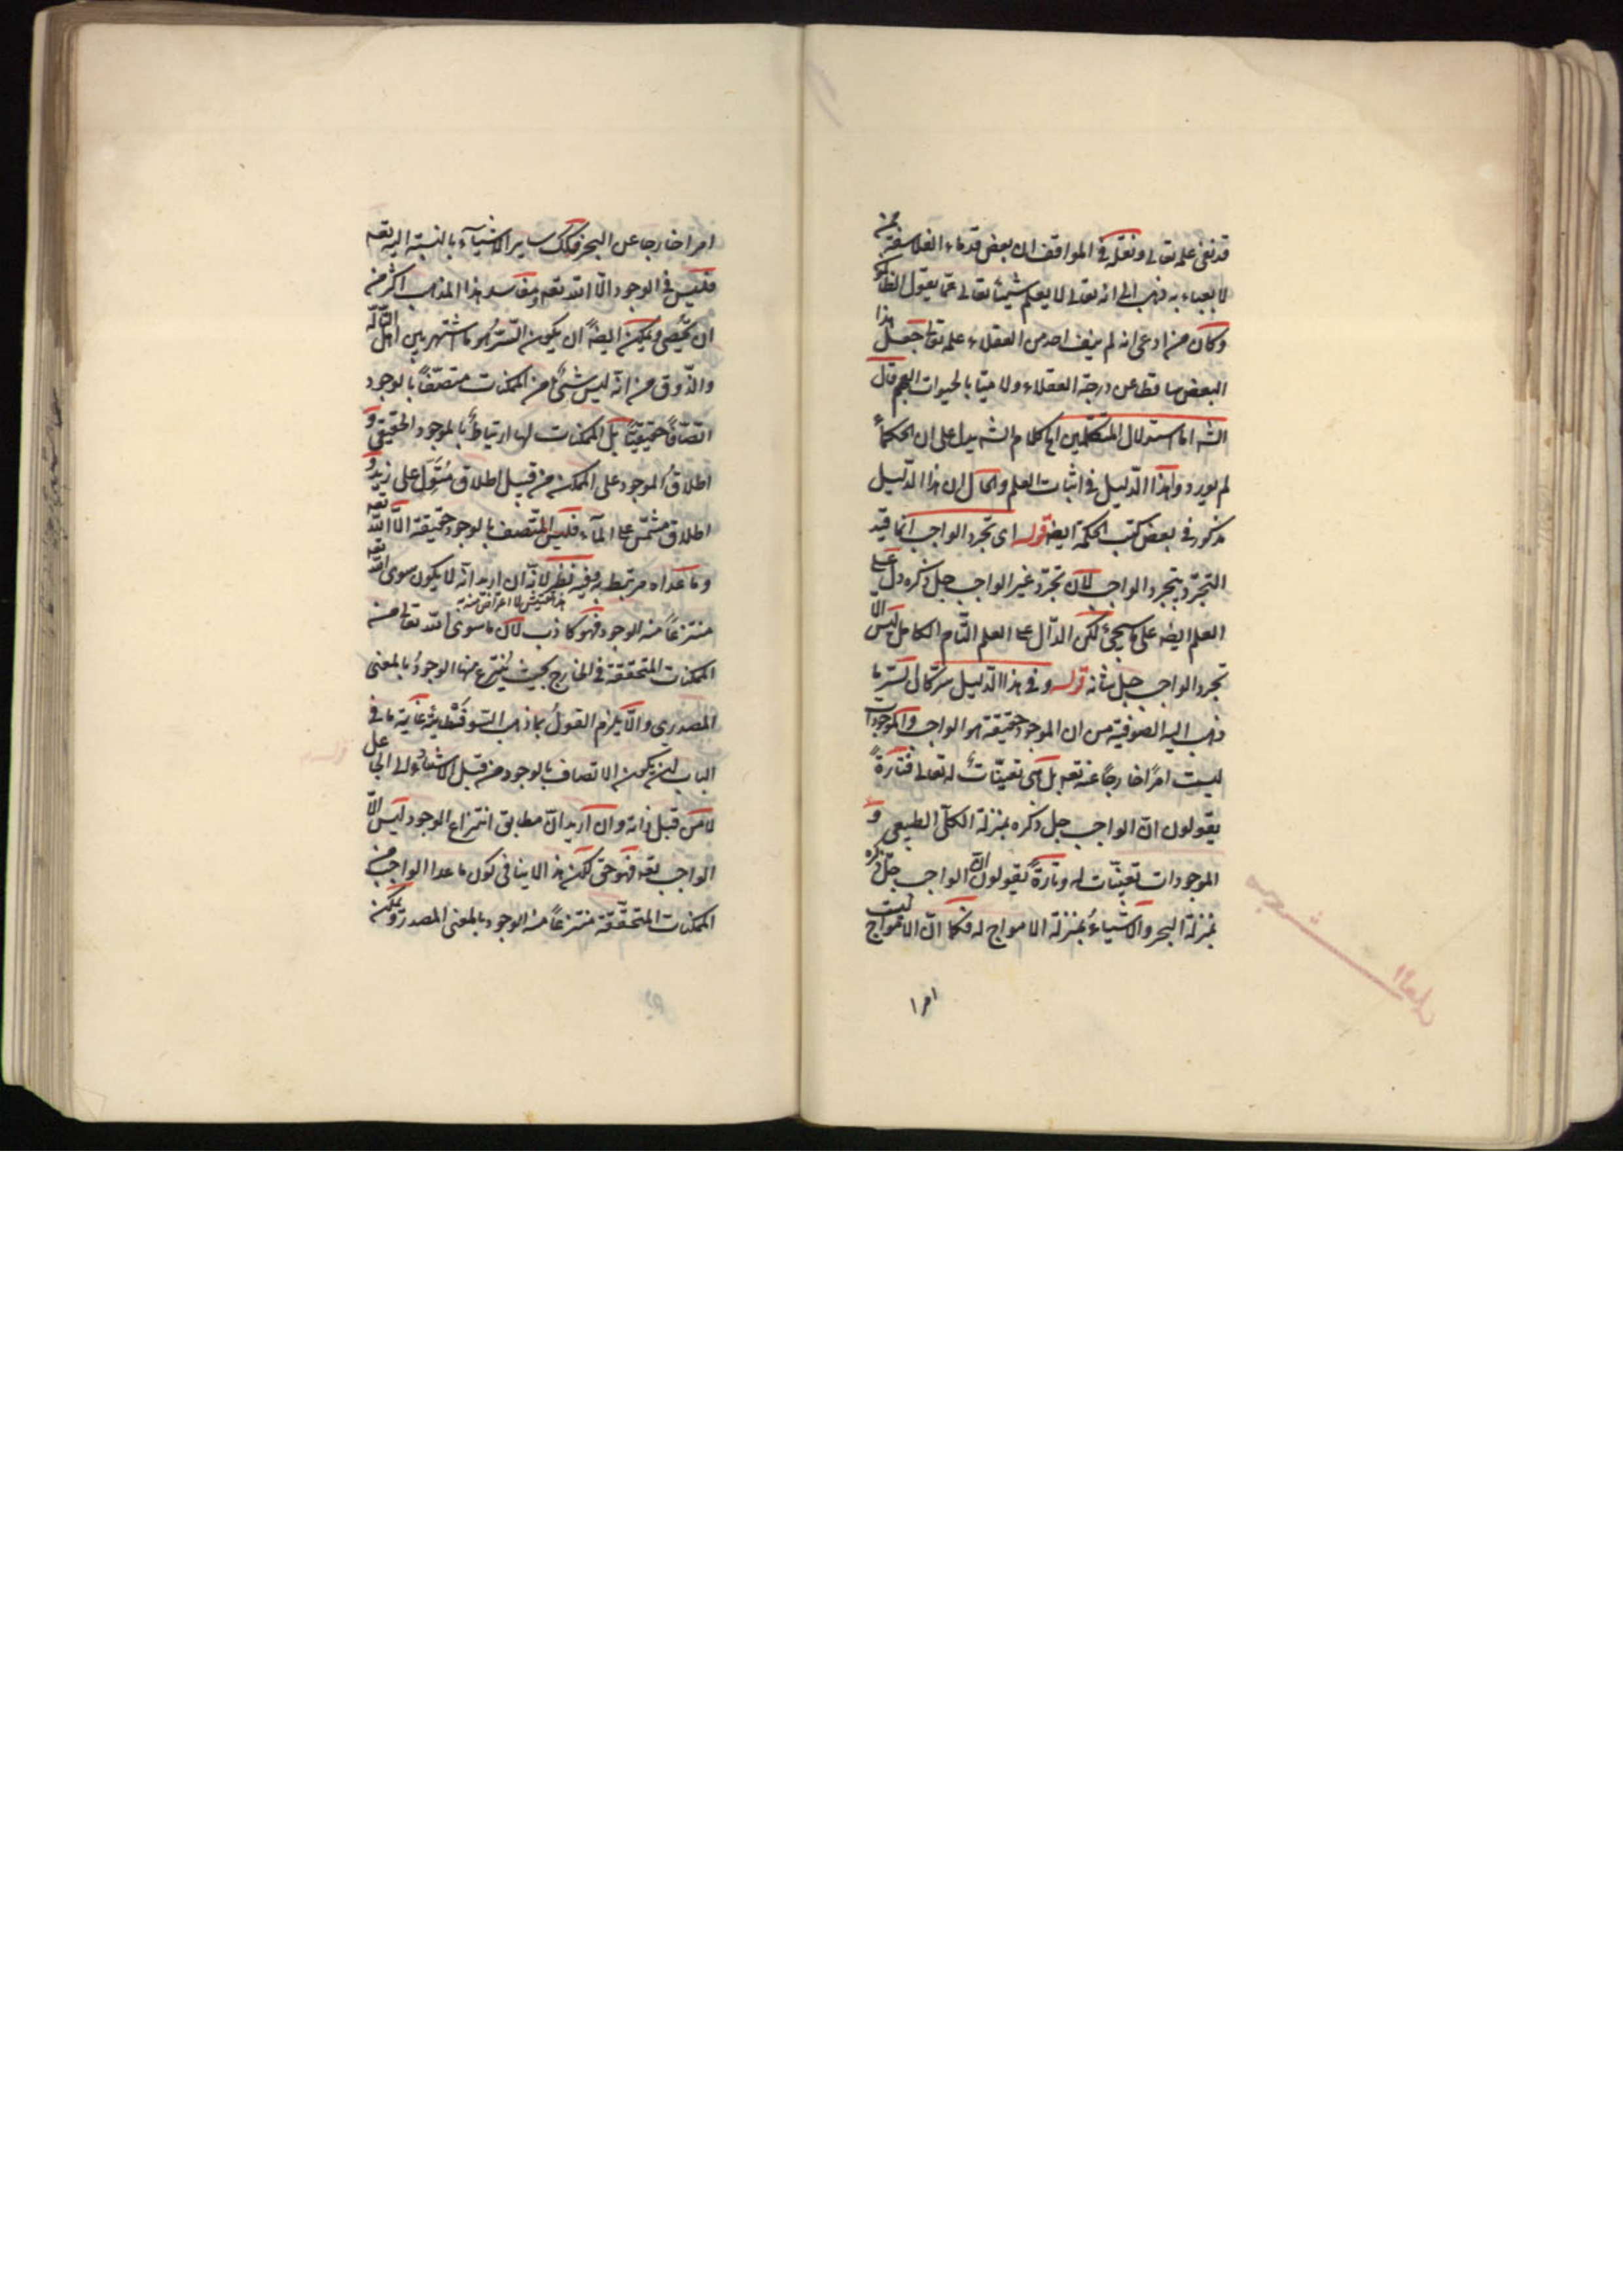 قد نفى علمه تعالى ونقله فى المواقف ان بعض قدماء الفلاسفة ممن
لا يعباء به ذهب الى انه تعالى لا يعلم شيئا تعالى عما يقول الظالمو
وكان من ادعى انه لم ينف احد من العقلاء علمه تعالى جعل هذا
البعض ساقطا عن درجة العقلاء ولا ميتا بالحيوات العجم قال
الشه اما استدلال المتكلمين اه كلام الشه يدل على ان الحكماء
لم يوردوا هذا الدليل فى اثبات العلم والحال ان هذا الدليل
مذكور فى بعض كتب الحكمة ايضه قوله اى تجرد الواجب انما قيد
التجرد بتجرد الواجب لان تجرد غير الواجب جل ذكره دل على
العلم ايضه على ما سيجئ لكن الدال على العلم التام الكامل ليس الا
تجرد الواجب جل شانه قوله وفى هذا الدليل سر كان السر ما
ذهب اليه الصوفية من ان الموجود حقيقة هو الواجب والموجودات
ليست امرًا خارجًا عنه تعه بل هى تعينات له تعالى فتارةً
يقولون ان الواجب جل ذكره بمنزلة الكلى الطبيعى و
الموجودات تعينات له وتارةً يقولون ان الواجب جل ذكره
بمنزلة البحر والاشياءُ بمنزلة الامواج له فكما ان الامواج ليست
امرا
امرا خارجا عن البحر فكك ساير الاشياء بالنسبة اليه تعه
فليس فى الوجود الا الله تعه ومفاسد هذا المذهب اكثر من
ان يحصى ويمكن ايضه ان يكون السر هو ما اشتهر بين اهل التأله
والذوق من انه ليس شئ من الممكنات متصفًا بالوجود
اتصافًا حقيقيًا بل الممكنات لها ارتباط بالموجود الحقيقى و
اطلاقُ الموجود على الممكن من قبيل اطلاق متمول على زيد و
اطلاق مشمس على الماء فليس المتصف بالوجود حقيقة الا الله تعه
وما عداه مرتبط به وفيه نظر لانه ان اريد انه لا يكون سوى الله تعه
منتزعاً منه الوجود فهو كاذب لان ما سوى الله تعالى من
الممكنات المتحققة فى الخارج بحيث يُنتزع منها الوجودُ بالمعنى
المصدرى والا يلزم القولُ بما ذهب السوفسطائية غاية ما فى
الباب ان يكون الاتصاف بالوجود من قبل الاستناد الى الجاعل
لا من قبل ذاته وان اريد ان مطابق انتزاع الوجود ليس الا
الواجب تعه فهو حق لكن هذا لا ينافى كون ما عدا الواجب من
الممكنات المتحققة منتزعاً منه الوجود بالمعنى المصدرى ويمكن